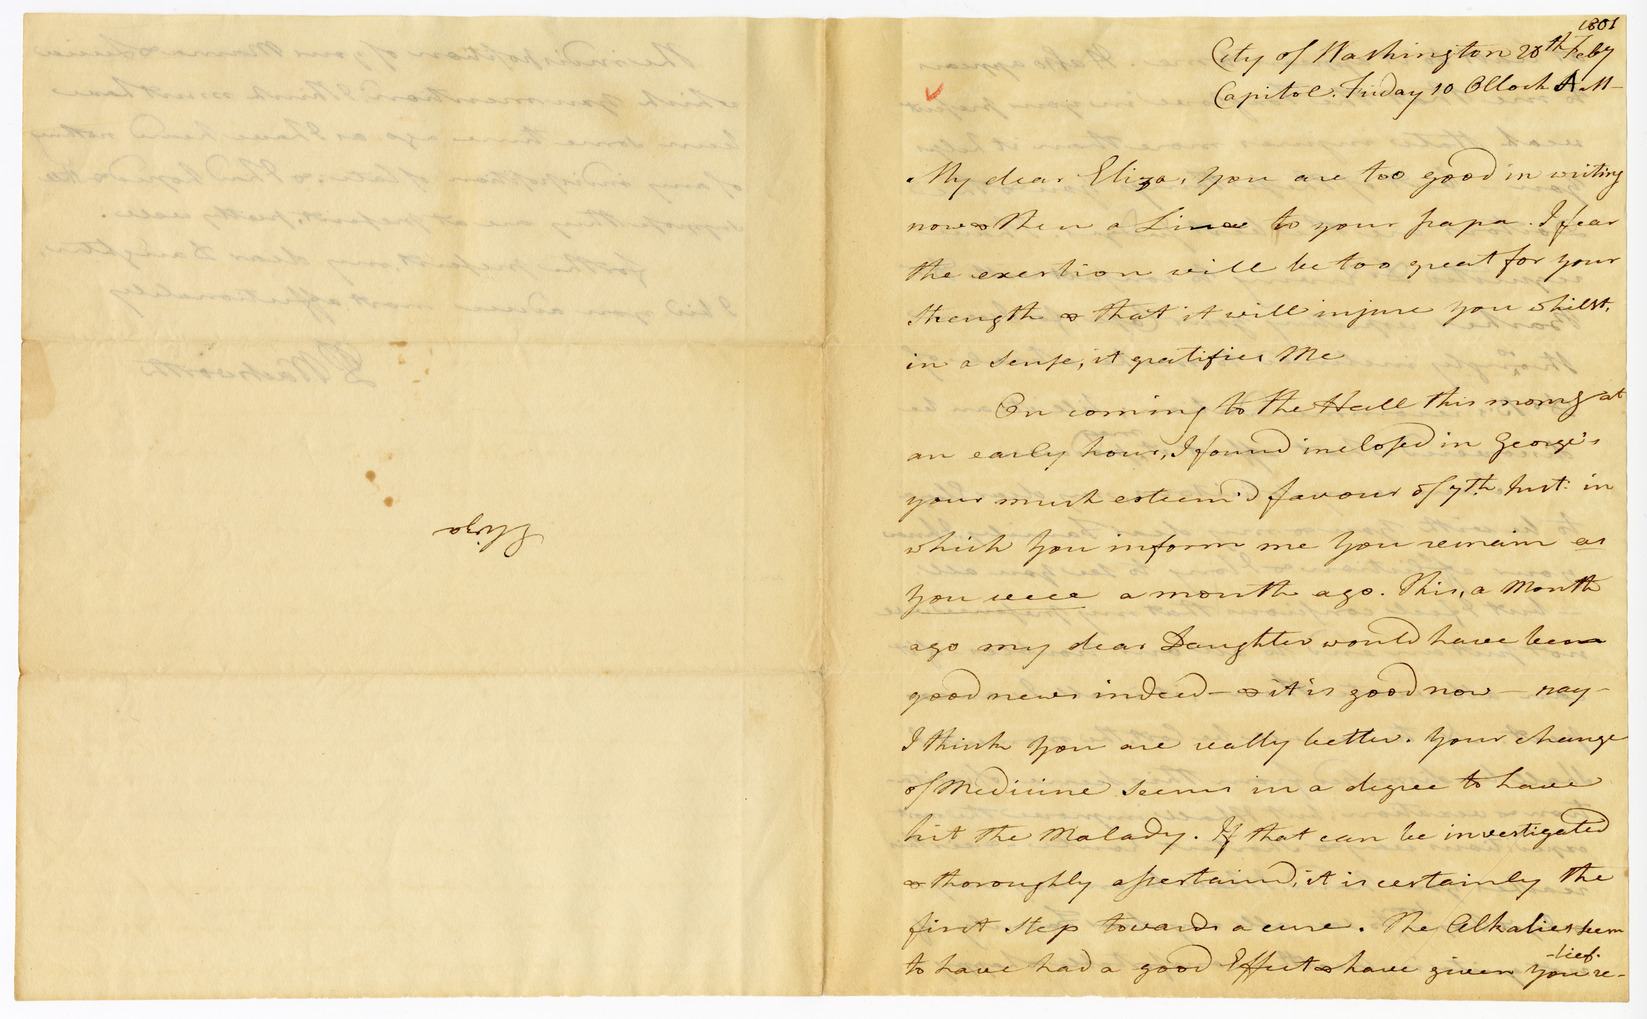 1801
City of Washington 20th Feby
Capitol. Friday 10 OClock A.M-
My dear Eliza, you are too good in writing
now & then a Line to your papa. I fear
the exertion will be too great for your
strength & that it will injure you whilst,
in a sense, it gratifies Me
On coming to the Hall this morng at
an early hour, I found inclosed in George's
your much esteem'd favour of 7th Inst: in
which you inform me you remain as
you were a month ago. This, a Month
ago my dear Daughter would have been
good news indeed - & it is good now - nay -
I think you are really better. Your change
of Medicine seems in a degree to have
hit the Malady. If that can be investigated
& thoroughly assertaind, it is certainly the
first step towards a cure. The Alkalies seem
to have had a good Effect & have given you re-
-lief.
Eliza